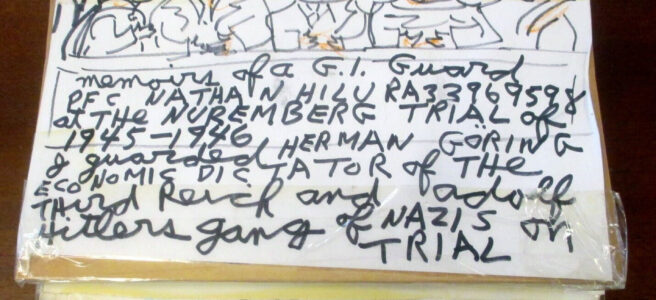 memoirs of a G.I. Guard
PFC NATHAN HILU RA33969598
at THE NUREMBERG TRIAL of
1945-1946
I guarded HERMAN GÖRING
ECONOMIC DICTATOR of THE
THird Reich and of adolf
Hitlers gang of NAZIS on
TRIAL